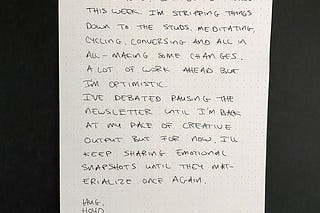 THIS WEEK. I'M STRIPPING THINGS
DOWN TO THE STUDS. MEDITATING,
CYCLING, CONVERSING AND ALL IN
ALL – MAKING SOME CHANGES.
A LOT OF WORK AHEAD BUT
I'M OPTIMISTIC.
I'VE DEBATED PAUSING THE
NEWSLETTER UNTIL I'M BACK
AT MY PACE OF CREATIVE
OUTPUT BUT FOR NOW, I'LL
KEEP SHARING EMOTIONAL
SNAPSHOTS UNTIL THEY MAT-
ERIALIZE ONCE AGAIN.
HUG,